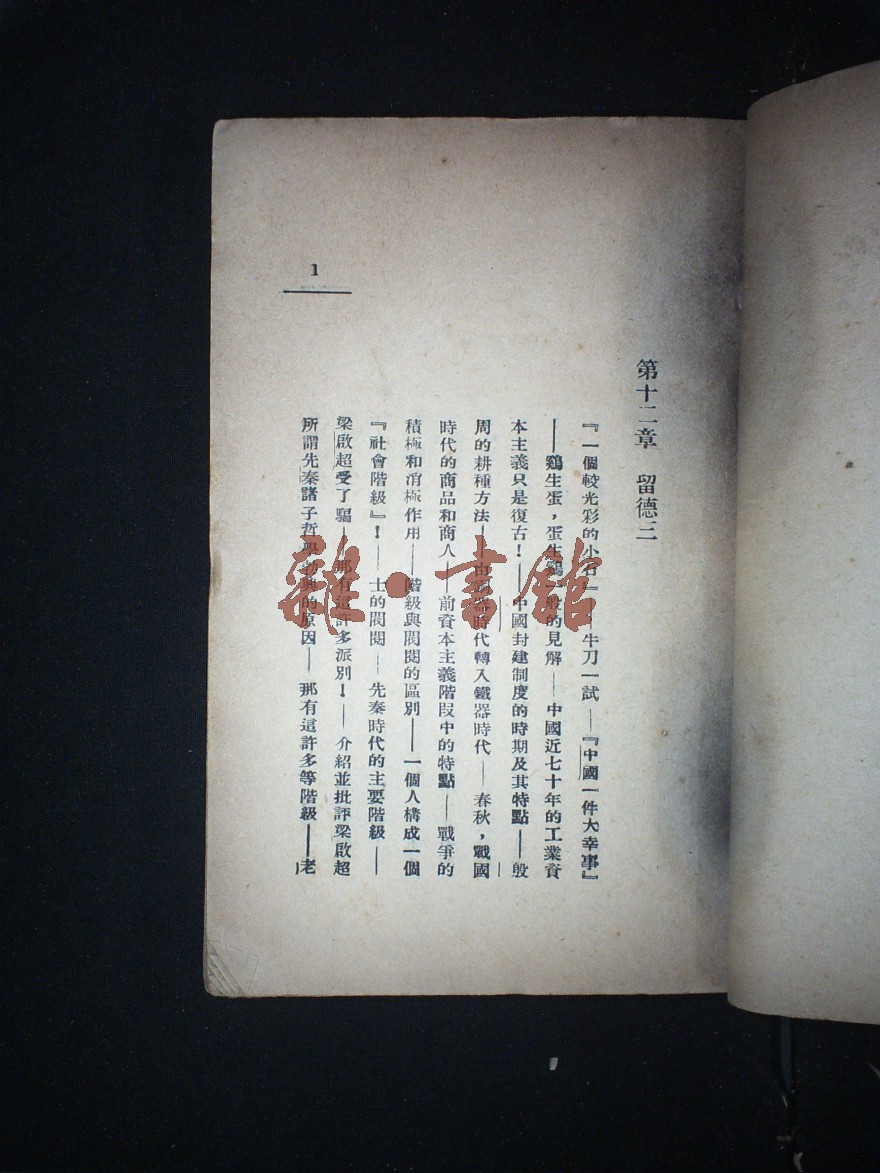 第十二章　留德三
『一個較光彩的小石』——牛刀一試——『中國一件大幸事』
——鷄生蛋，蛋生鷄一般的見解——中國近七十年的工業資
本主義只是復古！——中國封建制度的時期及其特點——殷
周的耕種方法——由銅器時代轉入鐵器時代——春秋，戰國
時代的商品和商人——前資本主義階段中的特點——戰爭的
積極和消極作用——階級與閥閱的區別——一個人構成一個
『社會階級』！——士的閥閱——先秦時代的主要階級——
梁啟超受了騙——那有這許多派別！——介紹並批評梁啟超
所謂先秦諸子哲學勃興的原因——那有這許多等階級——老
1
雜·書館